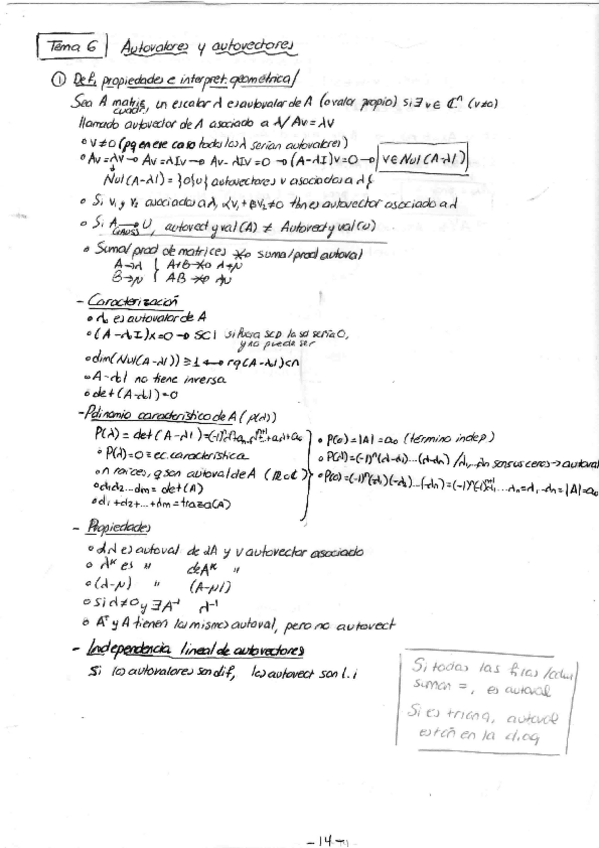 Tema 6 Autovalores y autovectores
① Def, propiedades e interpret. geométrica/
Sea A matriz cuadr, un escalar λ es autovalor de A (o valor propio) si ∃ v ∈ ℂⁿ (v≠0)
llamado autovector de A asociado a λ / Av = λv
• v≠0 (pq en ese caso todos los λ serían autovalores)
• Av = λv → Av = λIv → Av - λIv = 0 → (A-λI)v = 0 → v ∈ Nul(A-λI)
Nul(A-λI) = {0}U{ autovectores v asociados a λ}
• Si v₁ y v₂ asociados a λ, αv₁+βv₂≠0 tbn es autovector asociado a λ
• Si A → U, autovect y val(A) ≠ Autovect y val(U)
GAUSS
• Suma/prod de matrices suma/prod autoval
A→λ } A+B λ+μ
B→μ } AB λμ
- Caracterización
• λ₀ es autovalor de A
• (A-λI)x=0 → SCI si fuera SCD la sol sería 0,
y no puede ser
• dim(Nul(A-λI)) ≥ 1 ↔ rg(A-λI)<n
• A-λI no tiene inversa
• det(A-λI)=0
- Polinomio característico de A (p(λ))
P(λ) = det(A-λI) =
• P(λ)=0 = ec. característica
• n raíces, q son autoval de A
• λ₁λ₂...λm = det(A)
• λ₁+λ₂+...+λm = traza(A)
• P(0) = |A| = a₀ (término indep)
• P(λ) = (-1)ⁿ(λ-λ₁)...(λ-λn) / λ₁,...,λn son sus ceros → autoval
• P(0) = (-1)ⁿ(-λ₁)(-λ₂)...(-λn) = λ₁...λn = |A| = a₀
- Propiedades
• αλ es autoval de αA y v autovector asociado
• λᴷ es " de Aᴷ "
• (λ-μ) " (A-μI)
• Si λ≠0 y ∃A⁻¹ λ⁻¹
• Aᵀ y A tienen los mismos autoval, pero no autovect
- Independencia lineal de autovectores
Si los autovalores son dif, los autovect son l.i
Si todas las filas/colum
suman =, es autoval
Si es triang, autoval
están en la diag
-14-